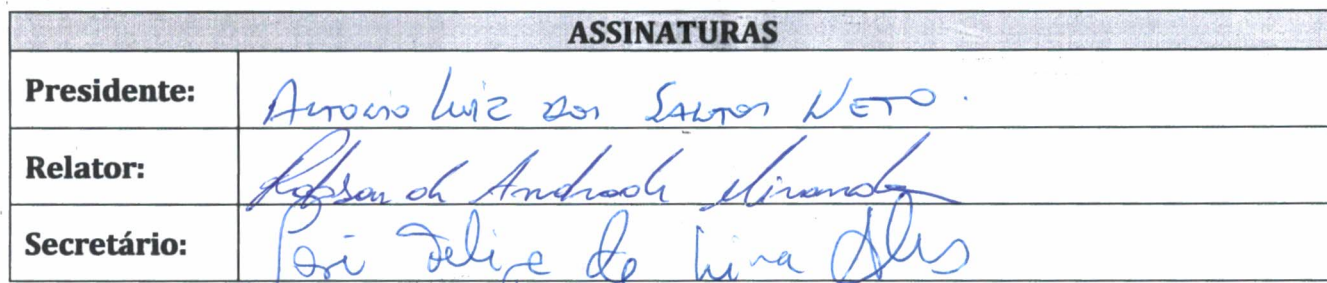 ASSINATURAS
Presidente: Antonio Luiz dos Santos Neto.
Relator: Robson de Andrade Miranda
Secretário: José Felipe de Lima Alves